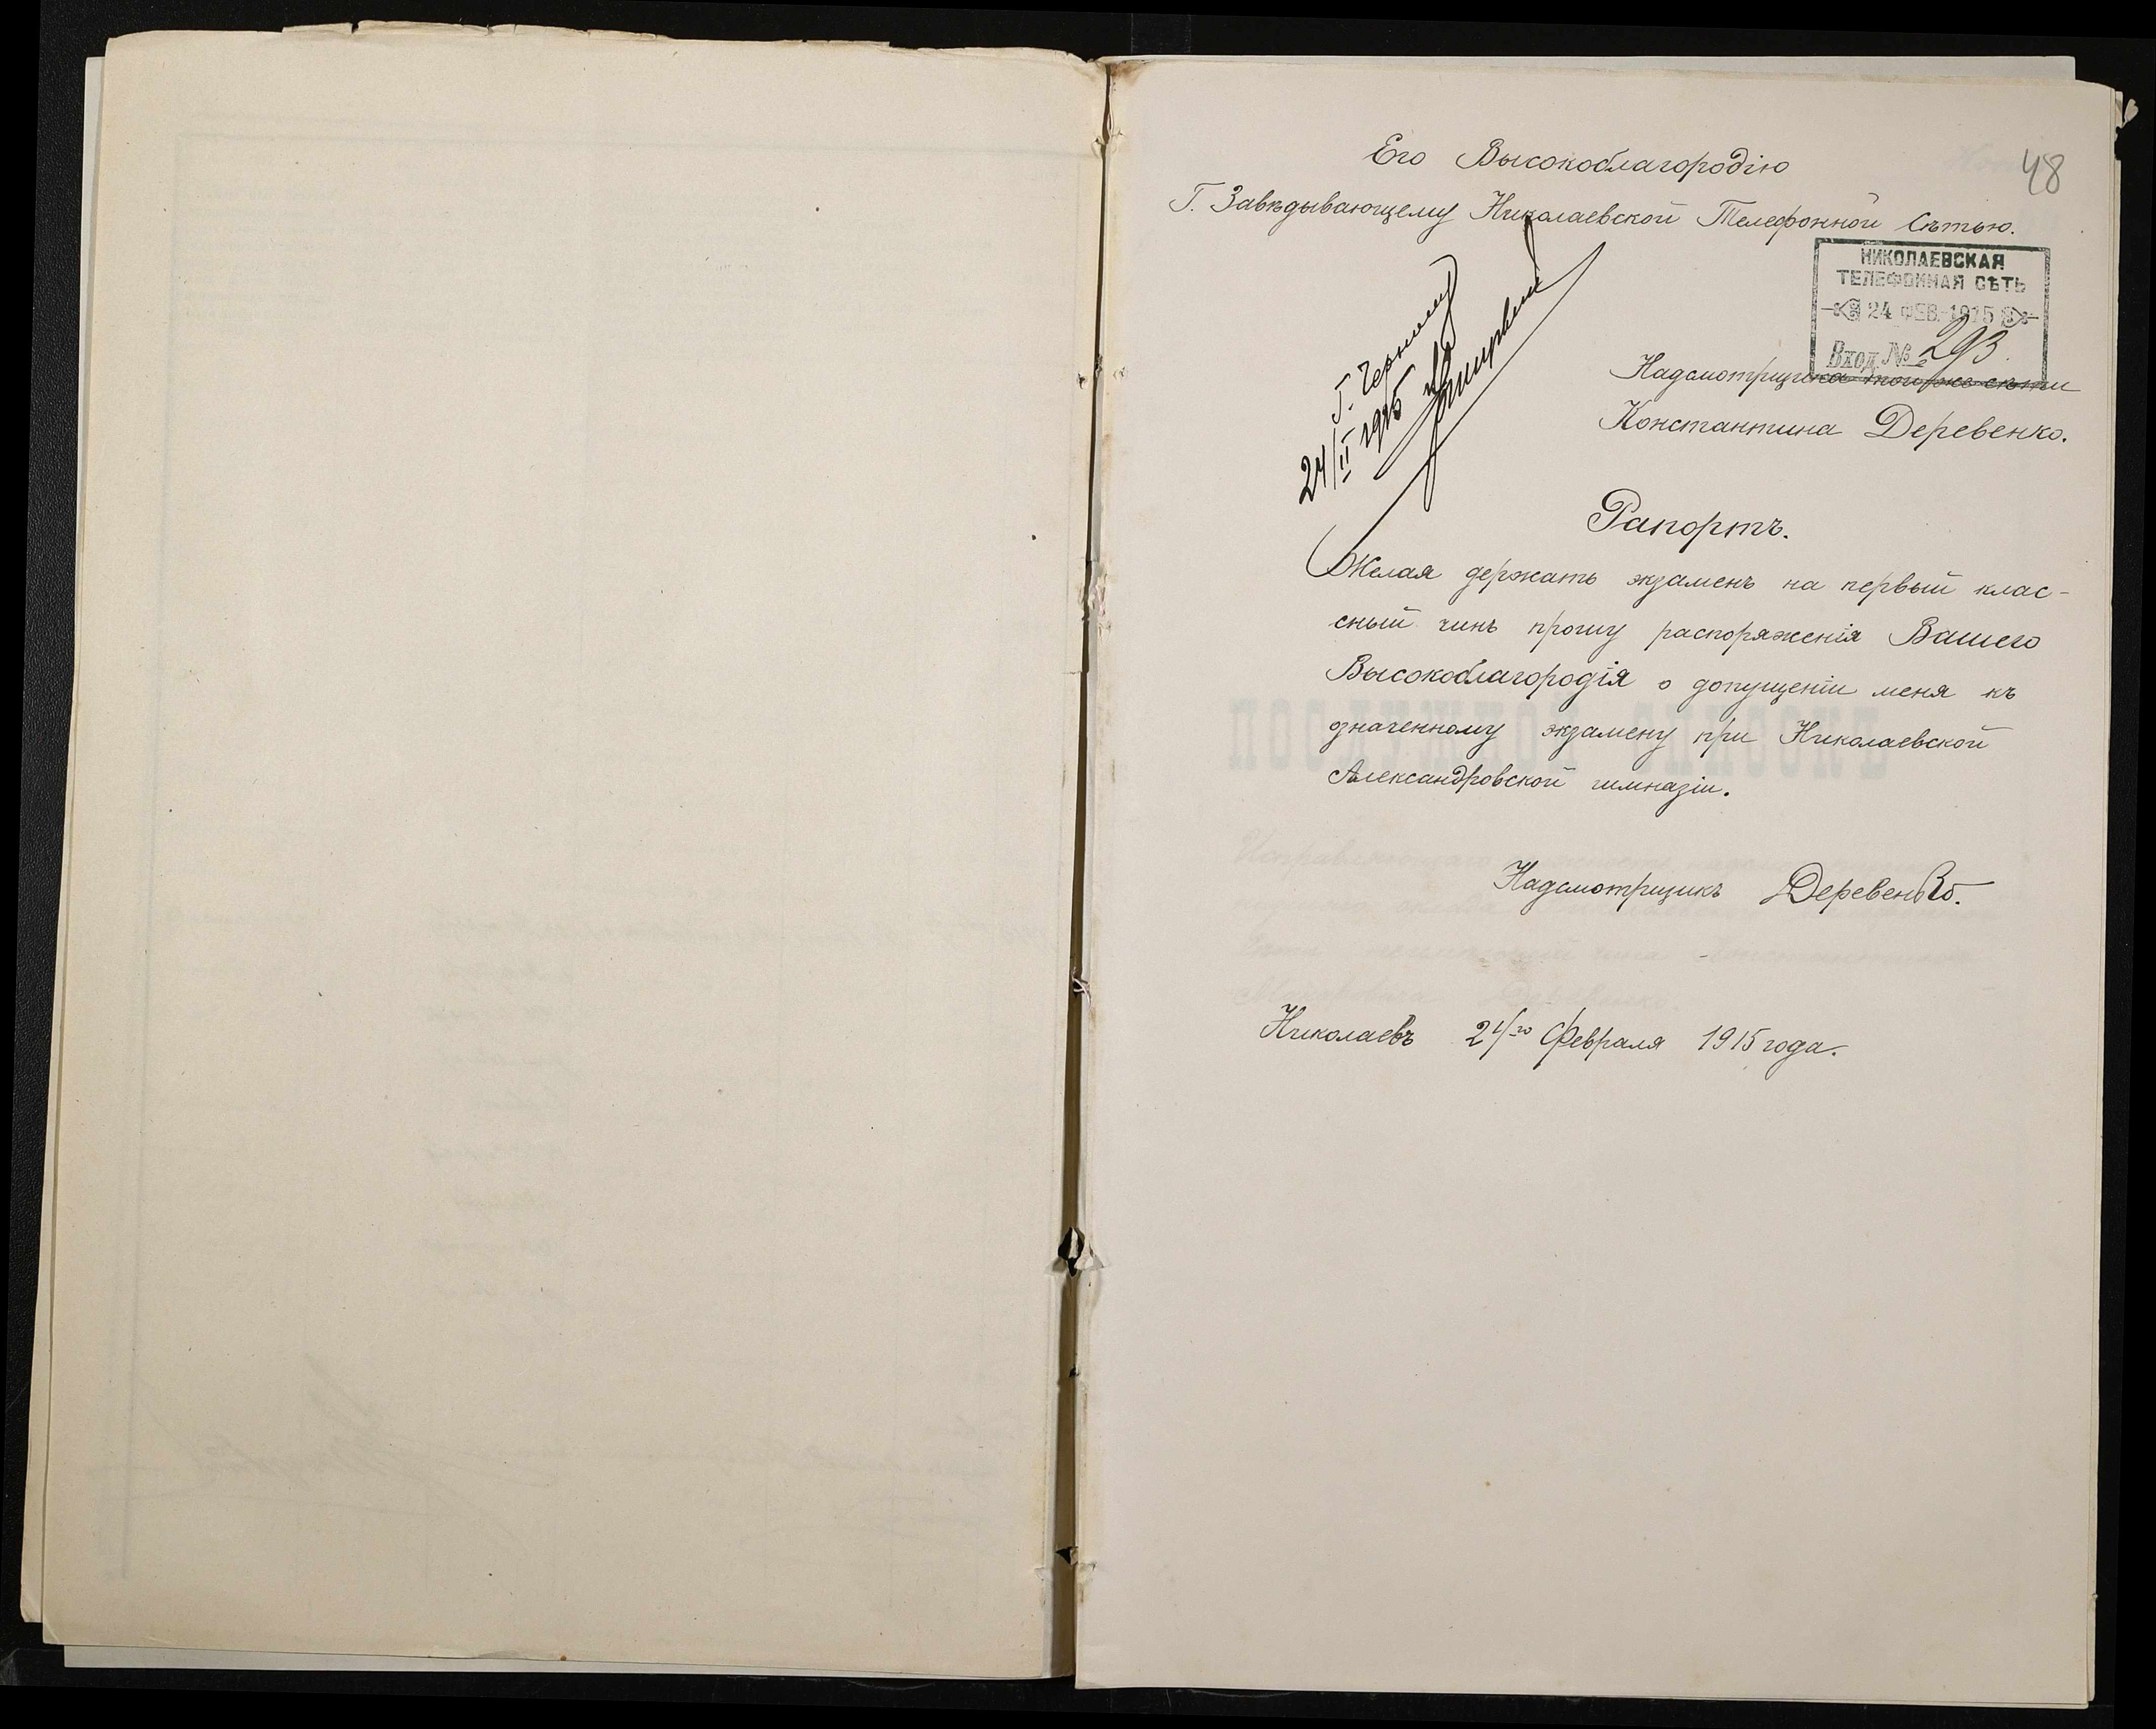 48
Его Высокоблагородію
Г. Завѣдывающему Николаевской Телефонной Сѣтью.
НИКОЛАЕВСКАЯ
ТЕЛЕФОННАЯ СѢТЬ
24 ФЕВ. 1915
Вход. № 293.
Г. Черному
24/II 1915
Надсмотрщика той же сѣти
Константина Деревенко.
Рапортъ.
Желая держать экзаменъ на первый клас-
сный чинъ прошу распоряженія Вашего
Высокоблагородія о допущеніи меня къ
означенному экзамену при Николаевской
Александровской гимназіи.
Надсмотрщикъ Деревенко.
Николаевъ 24/го Февраля 1915 года.
ПОСЛУЖНОЙ СПИСОКЪ